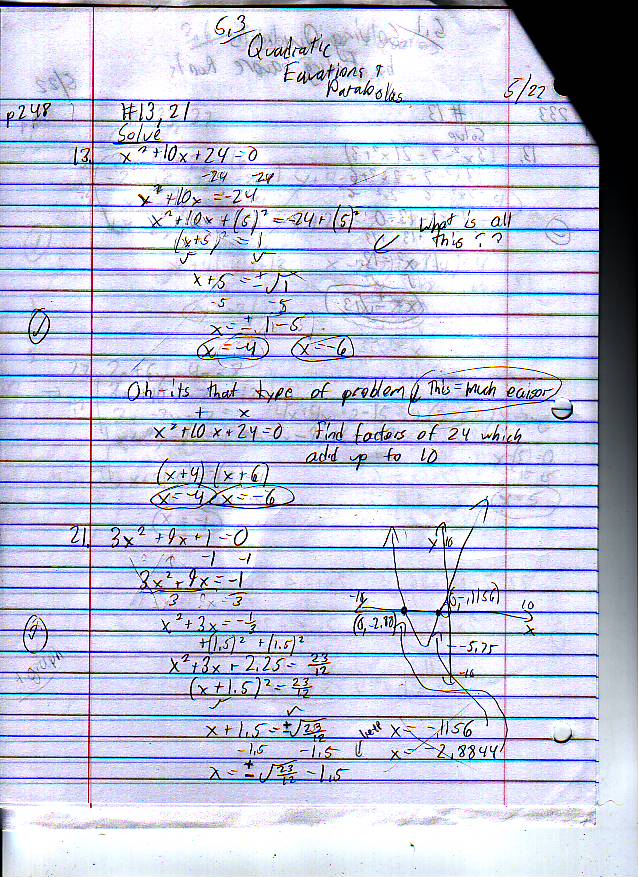 5.3
Quadratic
Equations &
Parabolas
5/22
p248
#13, 21
Solve
13. x² + 10x + 24 = 0
-24 -24
x² + 10x = -24
x² + 10x + (5)² = -24 + (5)²
(x+5)² = 1
What is all
this ? ?
x + 5 = ±√1
-5 -5
x = ± 1 - 5
x = -4 x = -6
Oh - its that type of problem! This = Much easier
+ x
x² + 10x + 24 = 0 find factors of 24 which
add up to 10
(x+4) (x+6)
x = -4 x = -6
21. 3x² + 9x + 1 = 0
-1 -1
3x² + 9x = -1
3 3
x² + 3x = -1/3
+(1.5)² +(1.5)²
x² + 3x + 2.25 = 23/12
(x + 1.5)² = 23/12
x + 1.5 = ±√23/12
-1.5 -1.5
x = ±√23/12 - 1.5
y 10
-10
(0, -.1156)
10
x
(0, -2.88)
-5.75
-10
here
x = -.1156
x = -2.8844